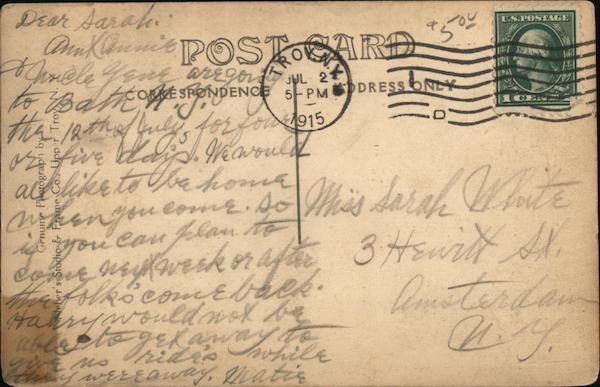 Dear Sarah:
Aunt Annie
& Uncle Gene are going
to Bath N.Y.
the 12th of July, for four
or five days. We would
all like to be home
when you come. So
if you can plan to
come next week or after
the folks come back.
Harry would not be
able to get away to
give us rides while
they were away. Matie
POST CARD
CORRESPONDENCE
ADDRESS ONLY
TROY, N.Y.
JUL 2
5-PM
1915
$5.00
U.S. POSTAGE
1 CENT 1
Miss Sarah White
3 Hewitt St.
Amsterdam
N.Y.
Genuine Photograph by
Studio & Frame Co., Upp. Troy, N.Y.